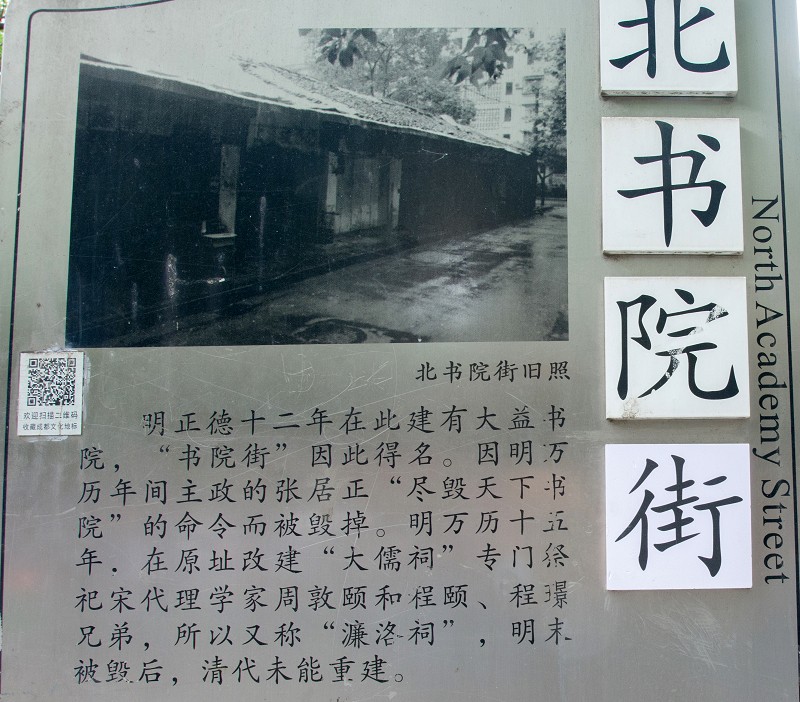 北书院街
North Academy Street
北书院街旧照
欢迎扫描二维码
收藏成都文化地标
明正德十二年在此建有大益书
院，“书院街”因此得名。因明万
历年间主政的张居正“尽毁天下书
院”的命令而被毁掉。明万历十五
年．在原址改建“大儒祠”专门祭
祀宋代理学家周敦颐和程颐、程璟
兄弟，所以又称“濂洛祠”，明末
被毁后，清代未能重建。